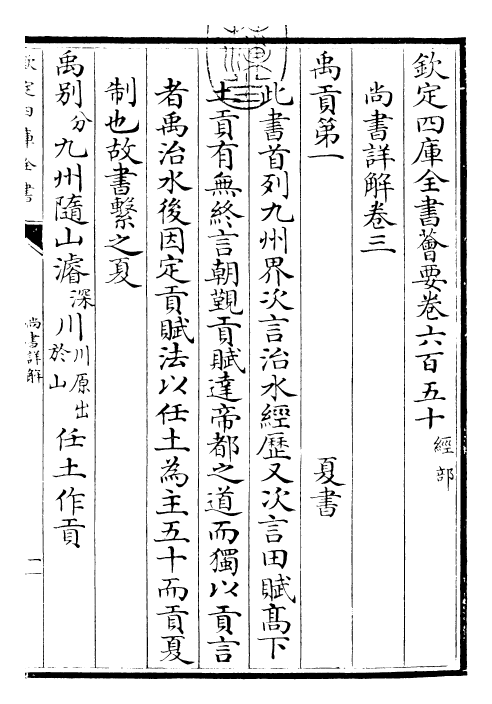 欽定四庫全書薈要卷六百五十 經部
尚書詳解卷三
禹貢第一 夏書
此書首列九州界次言治水經歷又次言田賦髙下
土貢有無終言朝覲貢賦達帝都之道而獨以貢言
者禹治水後因定貢賦法以任土為主五十而貢夏
制也故書繫之夏
禹别分九州隨山濬深川川原出於山任土作貢
欽定四庫全書
尚書詳解
一